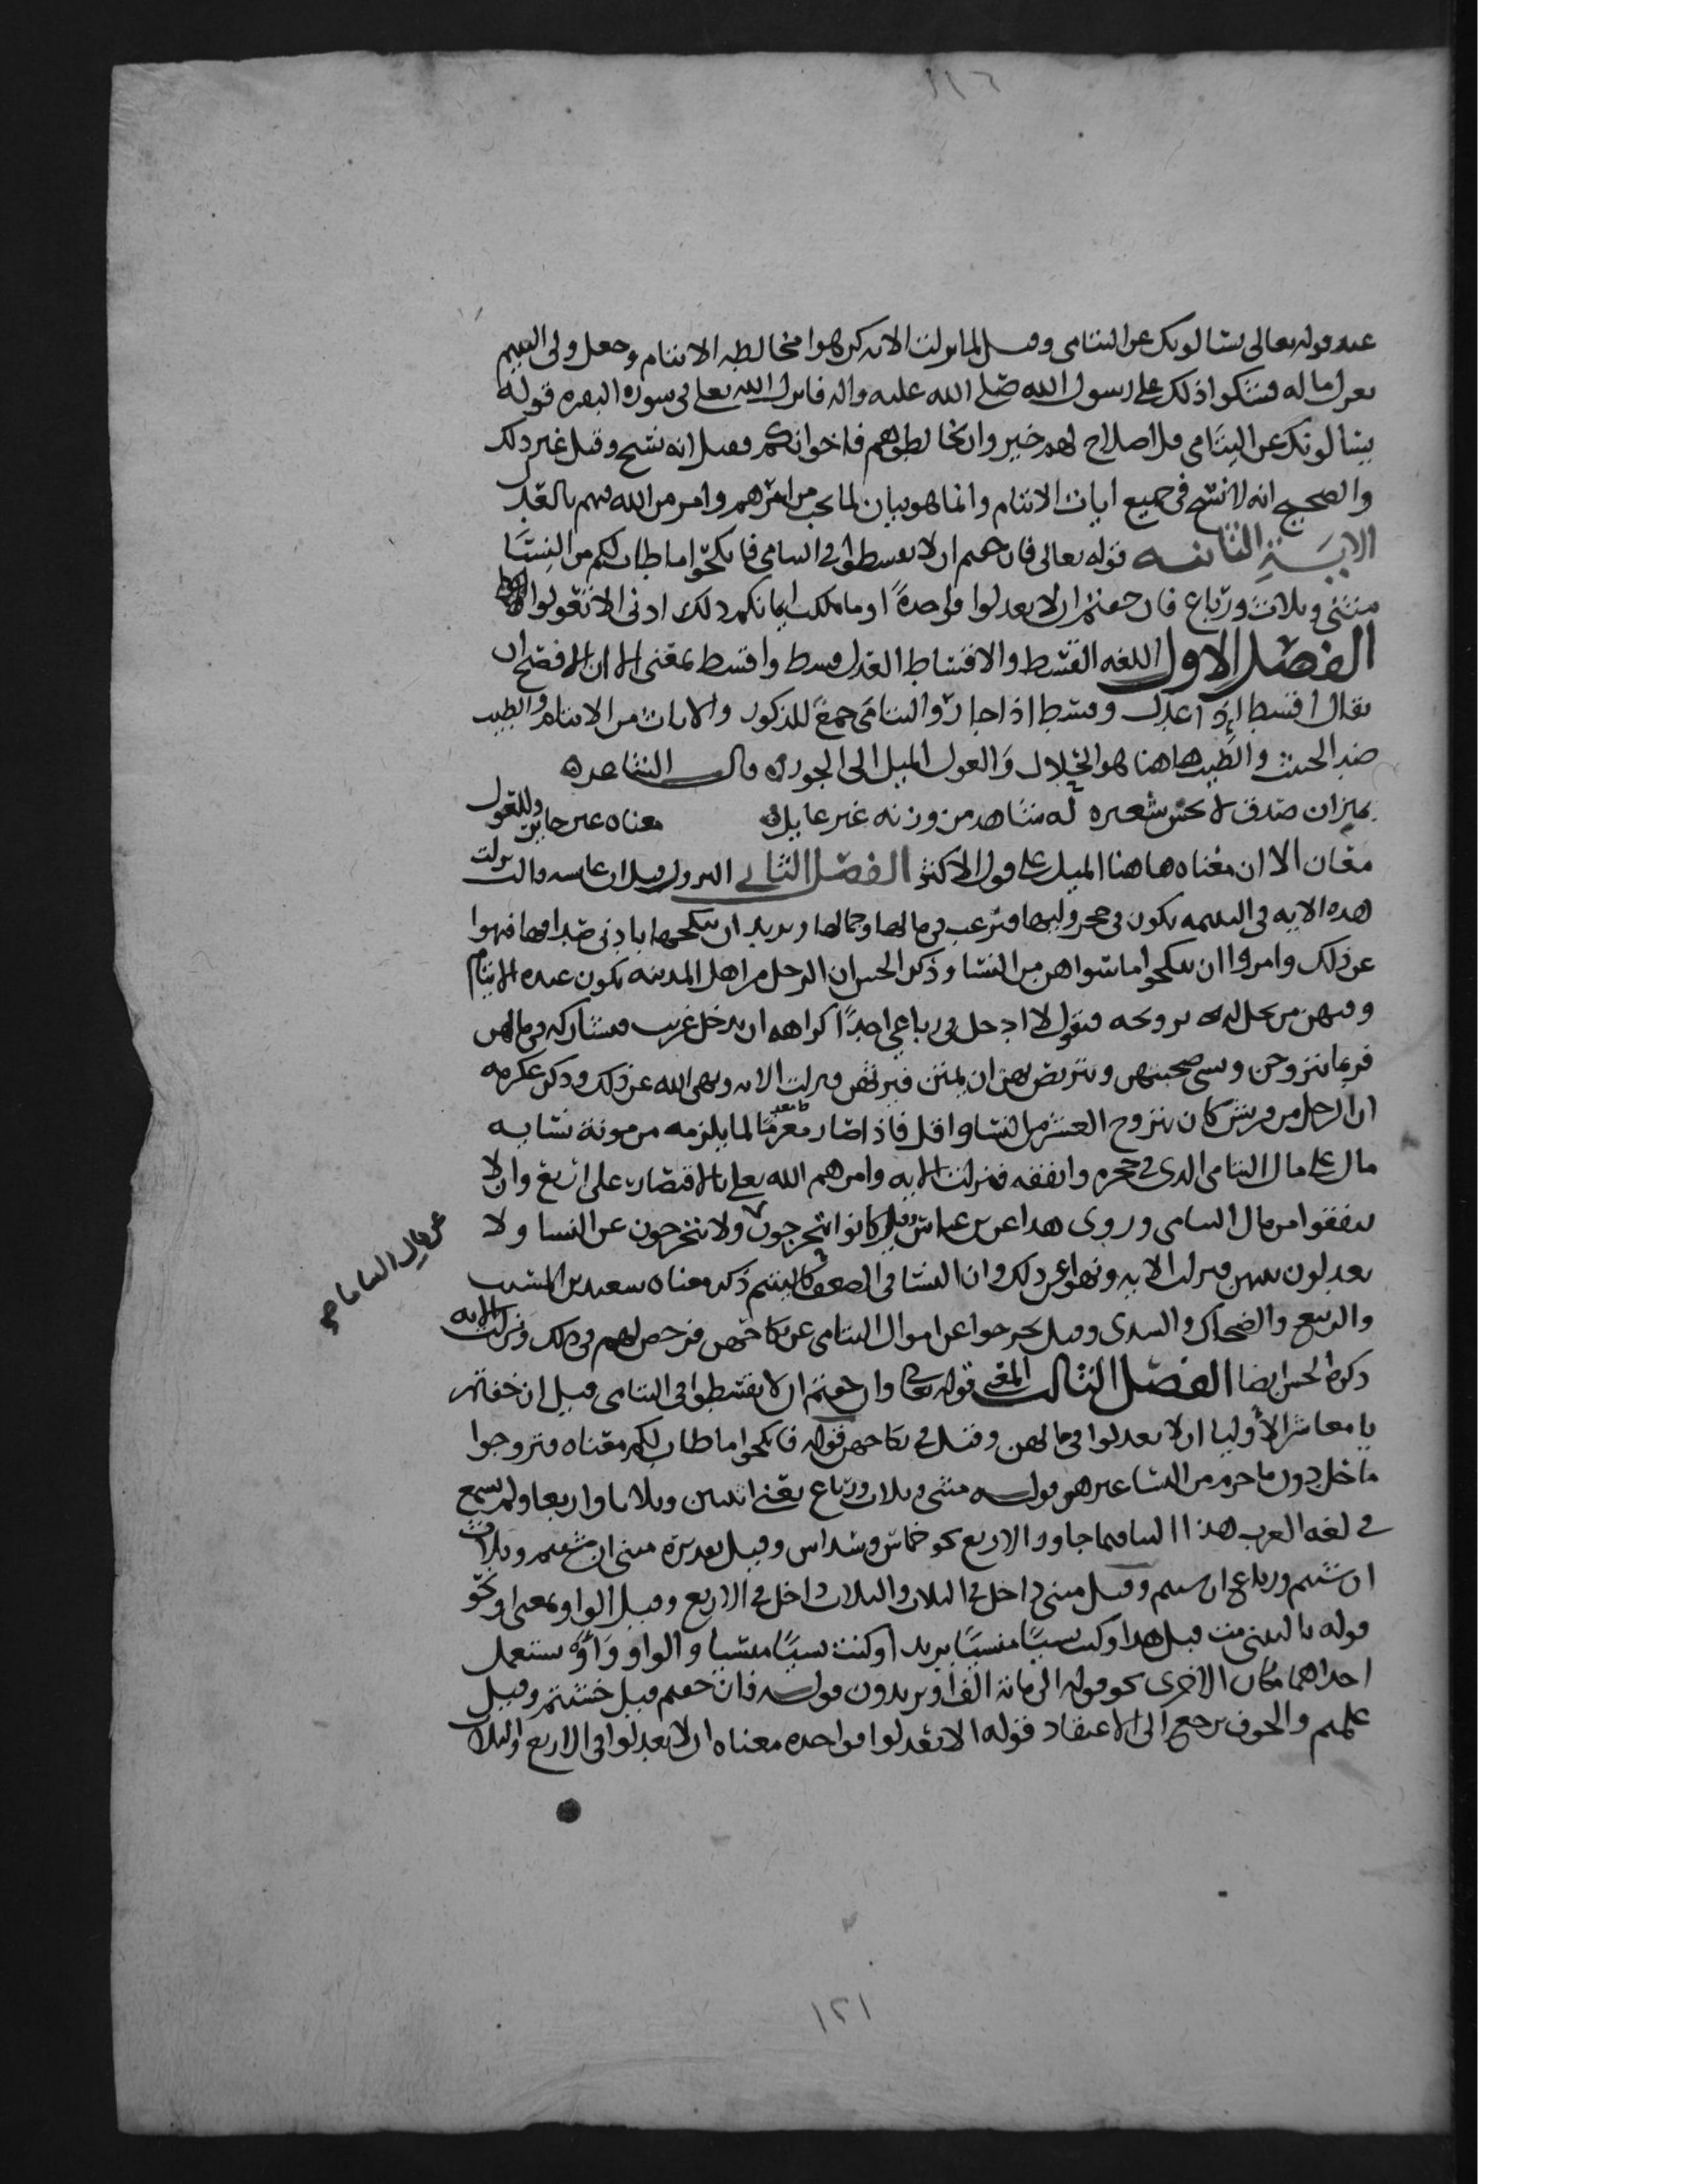 ١١٦
عنه قوله تعالى يسالونك عن اليتامى وقيل لما نزلت الايه كرهوا مخالطه الايتام وجعل ولى اليتيم
يعزل ماله فشكوا ذلك على رسول الله صلى الله عليه واله فانزل الله تعالى فى سوره البقره قوله
يسالونك عن اليتامى قل اصلاح لهم خير وان تخالطوهم فاخوانكم فقيل انه نسخ وقيل غير ذلك
والصحيح انه لا نسخ فى جميع ايات الايتام وانما هو بيان لما يجب من امرهم وامر من الله فيهم بالعدل
الايــة الثانيــه قوله تعالى فان خفتم ان لا تقسطوا فى اليتامى فانكحوا ما طاب لكم من النسا
مثنى وثلاث ورباع فان خفتم ان لا تعدلوا فواحدةً او ما ملكت ايمانكم ذلك ادنى الا تعولوا
الفصل الاول اللغه القسط والاقساط العدل قسط واقسط بمعنى الا ان الافصح ان
يقال اقسط اذا عدل وقسط اذا جار واليتامى جمع للذكور والاناث من الايتام والطيب
ضد الخبيث والطيب هاهنا هو الحلال والعول الميل الى الجور قال الشاعر
بميزان صدق لا يخس شعيره له شاهد من وزنه غير عايل معناه غير جاير وللعول
معان الا ان معناه هاهنا الميل على قول الاكثر الفصل الثانى النزول قيل ان عايشه قالت نزلت
هذه الايه فى اليتيمه تكون فى حجر وليها فيرغب فى مالها وجمالها ويريد ان ينكحها بادنى صداقها فنهوا
عن ذلك وامروا ان ينكحوا ما سواهن من النسا وذكر الحسن ان الرجل من اهل المدينه يكون عنده الايتام
وفيهن من يحل له تزويجه فيقول لا ادخل فى رباعى احدًا كراهه ان يدخل غريب فيشاركه فى مالهن
فربما يتزوجن ويسى صحبتهن ويتربص بهن ان يمتن فيرثهن فنزلت الايه ونهى الله عن ذلك وذكر عكرمه
ان الرجل من قريش كان يتزوج العشر من النسا واقل فاذا صار معدمًا لما يلزمه من مونة نسايه
مال على مال اليتامى الذى فى حجره وانفقه فنزلت الايه وامرهم الله تعالى بالاقتصار على اربع وان لا
ينفقوا من مال اليتامى وروى هذا عن بن عباس وقيل كانوا يتحرجون ولا يتحرجون عن النسا ولا
عن مال اليتاما
يعدلون بينهن فنزلت الايه ونهوا عن ذلك وان النسا فى الضعف كاليتيم ذكر معناه سعيد بن المسيب
والربيع والضحاك والسدى وقيل تحرجوا عن اموال اليتامى عن نكاحهن فرخص لهم فى ذلك ونزلت الايه
ذكره الحسن ايضا الفصل الثالث المعنى قوله تعالى وان خفتم ان لا تقسطوا فى اليتامى قيل ان خفتم
يا معاشر الاوليا ان لا تعدلوا فى مالهن وقيل فى نكاحهن قوله فانكحوا ما طاب لكم معناه فتزوجوا
ما حل دون ما حرم من النسا غيرهن قوله مثنى وثلاث ورباع يعنى اثنين وثلاثا واربعا ولم يسمع
فى لغه العرب هذا البنا فيما جاوز الاربع نحو خماس وسداس وقيل تقديره مثنى ان شيتم وثلاث
ان شيتم ورباع ان شيتم وقيل مثنى داخل فى الثلاث والثلاث داخل فى الاربع وقيل الواو بمعنى او نحو
قوله يا ليتنى مت قبل هذا وكنت نسيًا منسيًا يريد او كنت نسيًا منسيا والواو واو يستعمل
احداهما مكان الاخرى نحو قوله الى مائة الف او يزيدون قوله فان خفتم قيل خشيتم وقيل
علمتم والخوف يرجع الى الاعتقاد قوله الا تعدلوا فواحده معناه ان لا تعدلوا فى الاربع والثلاث
١٢١